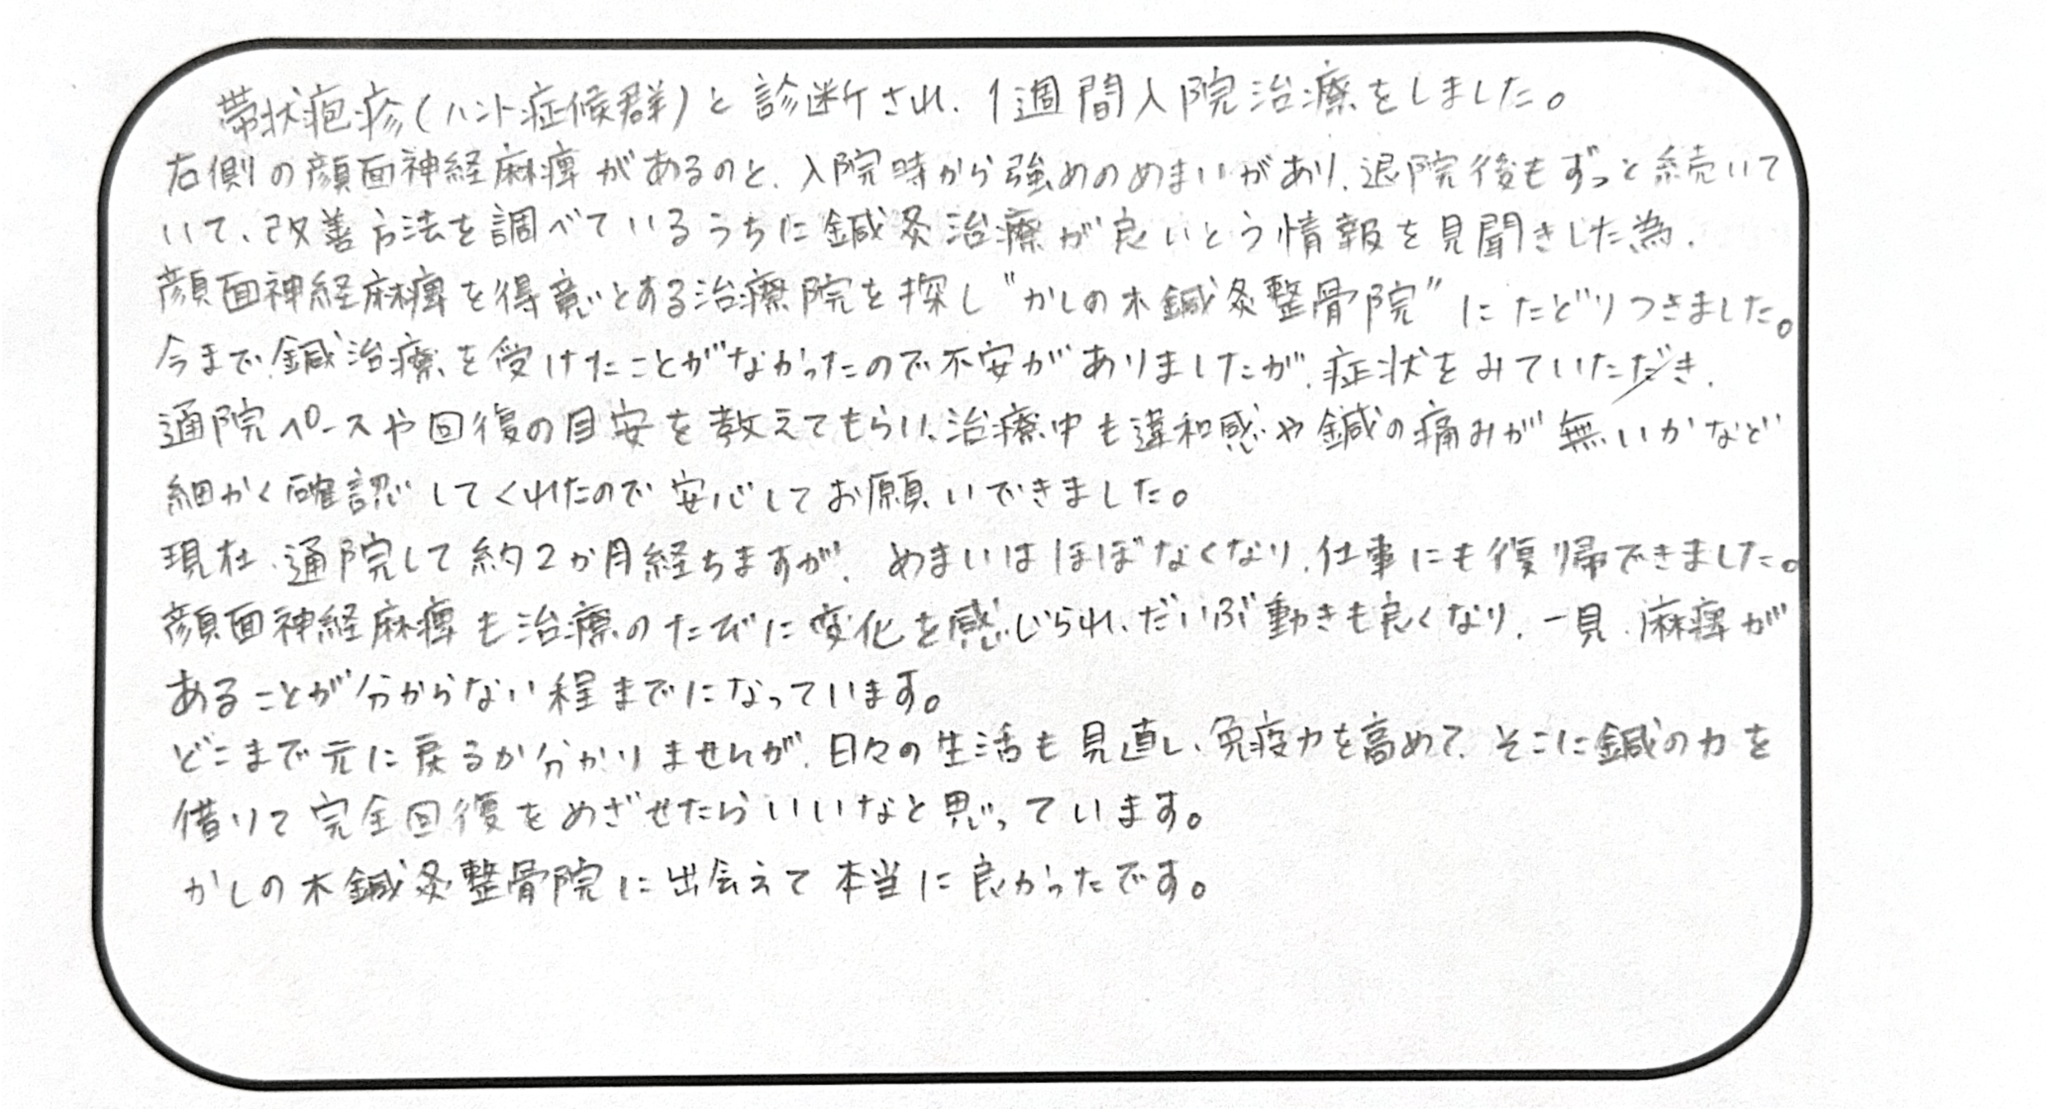 帯状疱疹(ハント症候群)と診断され、1週間入院治療をしました。
右側の顔面神経麻痺があるのと、入院時から強めのめまいがあり、退院後もずっと続いて
いて、改善方法を調べているうちに鍼灸治療が良いという情報を見聞きした為、
顔面神経麻痺を得意とする治療院を探し"かしの木鍼灸整骨院"にたどりつきました。
今まで鍼治療を受けたことがなかったので不安がありましたが、症状をみていただき、
通院ペースや回復の目安を教えてもらい、治療中も違和感や鍼の痛みが無いかなど
細かく確認してくれたので安心してお願いできました。
現在、通院して約2か月経ちますが、めまいはほぼなくなり、仕事にも復帰できました。
顔面神経麻痺も治療のたびに変化を感じられ、だいぶ動きも良くなり、一見、麻痺が
あることが分からない程までになっています。
どこまで元に戻るか分かりませんが、日々の生活も見直し、免疫力を高めて、そこに鍼の力を
借りて完全回復をめざせたらいいなと思っています。
かしの木鍼灸整骨院に出会えて本当に良かったです。